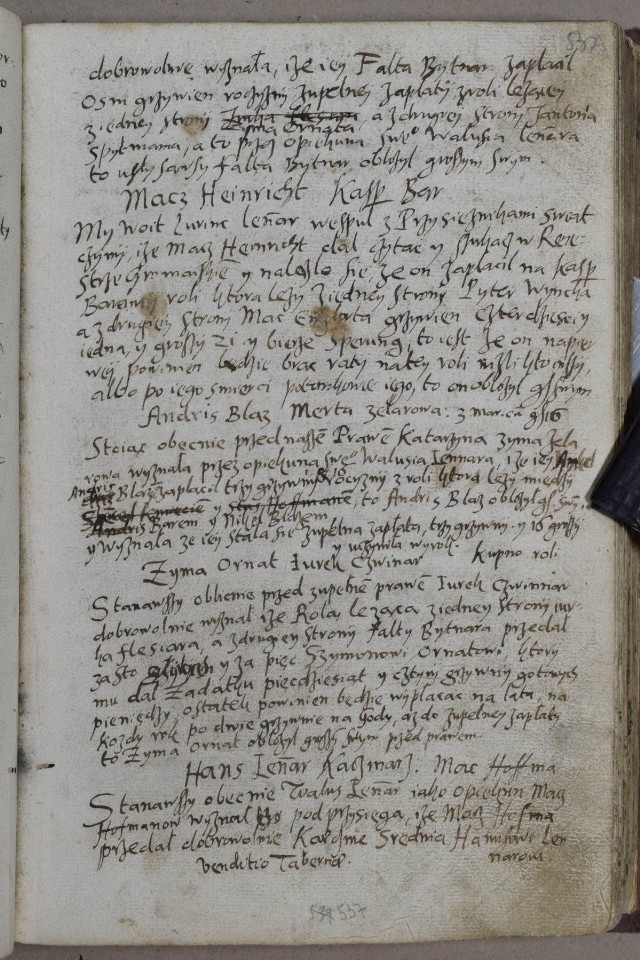 537
dobrowolnie wyznała, iże iey Falta Bytnar zapłacił
osm grzywien roczyzny zupełney zapłaty z roli lezącey
z iedney strony Zyma Ornata, a z drugiey strony Jantona
Spytmana, a to przez opiekuna swe° Walusia Lenara
to usłyszawszy Falta Bytnar obłożył groszym swym.
Macz Heinricht Kasp Bar
My Woit Lurinc Lenar wespuł z Przysięznikami swiat
czymy, iże Macz Heinricht dał czytac y szukac w Reie
strze Gromadskiē y nalezło się, ze on zapłacił na Kasp
Barowey roli ktora lezy z iedney strony Pyter Wyncka
a z drugiey strony Mac Englarta grzywien czterdziesci y
iedną, y groszy 21. y bierze sperung, to iest ze on napier
wey powinien będzie brac raty na tey roli nizli kto inszy,
albo po iego smierci potomkowie iego, to on obłozył gł swym
Andris Blaz Merta Zelarowa: 3 mar. gł 16
Stoiąc obecnie przed naszē Prawē Katarzyna Zyma Zela
rowa wyznała przez opiekuna swe° Walusia Lennara, iże iey
Andris Blaz zapłacił trzy grzywny roczyzny z roli ktora lezy między
Andris Barem y Nikel Blazkem, to Andris Blaz obłozył gł swym,
y wyznała ze iey stała się zupełna zapłata, trzy grzywny. y 16 groszy
y uczyniła wyrok.
Zyma Ornat Iurek Czwinar Kupno roli
Stanąwszy oblicnie przed zupełnē prawē Iurek Czwinnar
dobrowolnie wyznał iże Rolą lezącą z iedney strony Jur-
ka Flesiara, a z drugiey strony Falty Bytnara przedał
za sto y za pięc Szymonowi Ornatowi, ktory
mu dał zadatku pięcdziesiąt y cztyry grzywny gotowych
pieniędzy, ostatek powinien będzie wypłacac na lata, na
kozdy rok po dwie grzywnie na gody, az do zupełney zapłaty
to Zyma Ornat obłozył groszē swym przed prawem.
Hans Lenar Kaczmarz. Mac Hoffma
Stanąwszy obecnie Walus Lenar iako opiekun Mac
Hofmanow wyznał pod przysięgą, iże Macz Hofma
przedał dobrowolnie Karczmę Srednią Hanusowi Len
narowi
Venditio Tabernæ.
537